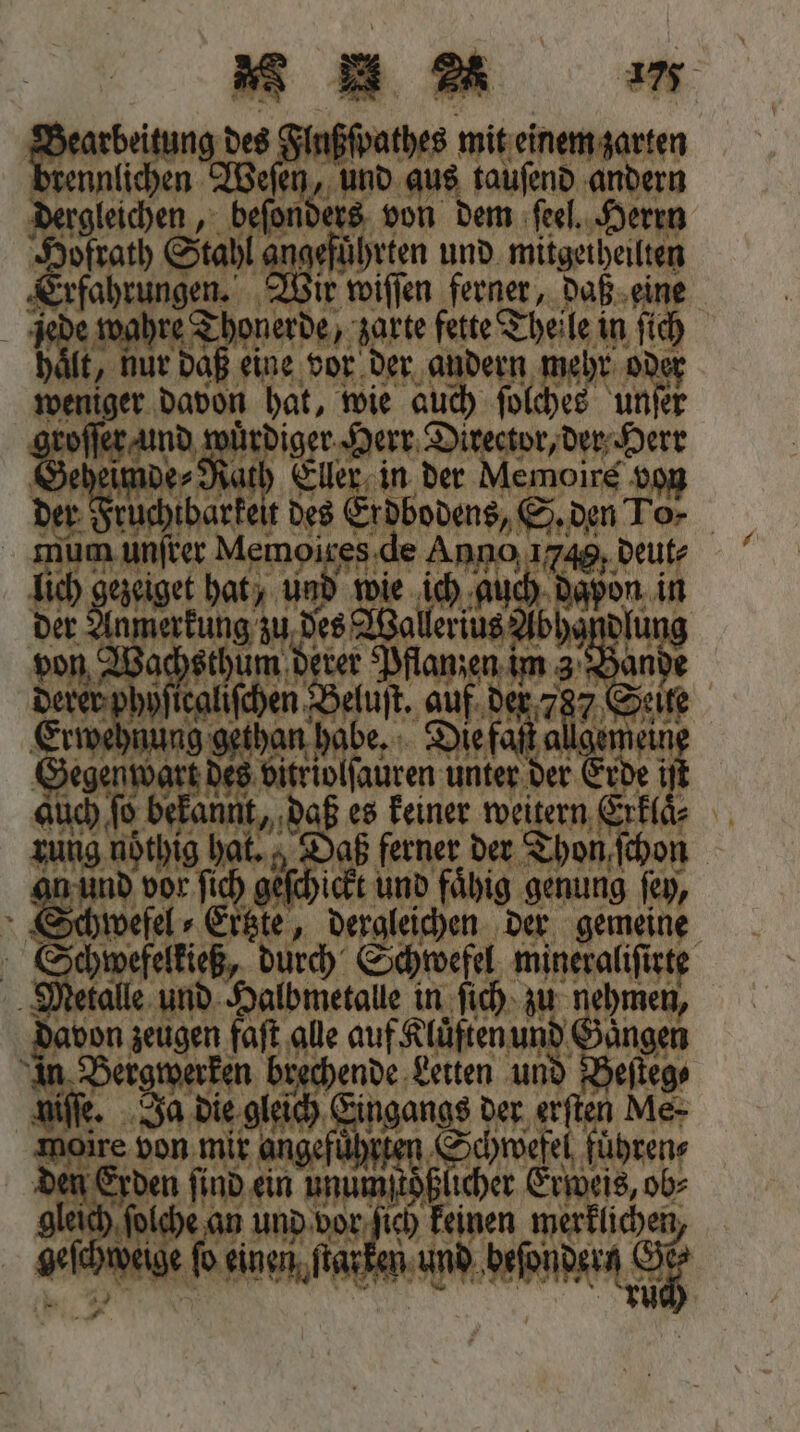 175
Bearbeitung des Flußſpathes mit einem zarten
brennlichen Weſen, und aus tauſend andern
dergleichen, beſonders von dem ſeel. Herrn
Hofrath Stahl angefuͤhrten und mitgetheilten
Erfahrungen. Wir wiſſen ferner, daß eine
jede wahre Thonerde, zarte fette Theile in ſich
haͤlt, nur daß eine vor der andern mehr oder
weniger davon hat, wie auch ſolches unſer
groſſer und wuͤrdiger Herr Director, der Herr
Geheimde-Rath Eller in der Memoire von
der Fruchtbarkeit des Erdbodens, S. den To-
mum unſrer Memoires de Anno 1749. deut-
lich gezeiget hat, und wie ich auch davon in
der Anmerkung zu des Wallerius Abhandlung
von Wachsthum derer Pflanzen im 3 Bande
derer phyſicaliſchen Beluſt. auf der 787 Seite
Erwehnung gethan habe. Die faſt allgemeine
Gegenwart des vitriolſauren unter der Erde iſt
auch ſo bekannt, daß es keiner weitern Erklaͤ-
rung noͤthig hat. Daß ferner der Thon ſchon
an und vor ſich geſchickt und faͤhig genung ſey,
Schwefel-Ertzte, dergleichen der gemeine
Schwefelkieß, durch Schwefel mineraliſirte
Metalle und Halbmetalle in ſich zu nehmen,
davon zeugen faſt alle auf Kluͤften und Gaͤngen
in Bergwerken brechende Letten und Beſteg-
niſſe. Ja die gleich Eingangs der erſten Me-
moire von mir angefuͤhrten Schwefel fuͤhren-
den Erden ſind ein unumſtoͤßlicher Erweis, ob-
gleich ſolche an und vor ſich keinen merklichen,
geſchweige ſo einen ſtarken und beſondern Ge-
ruch